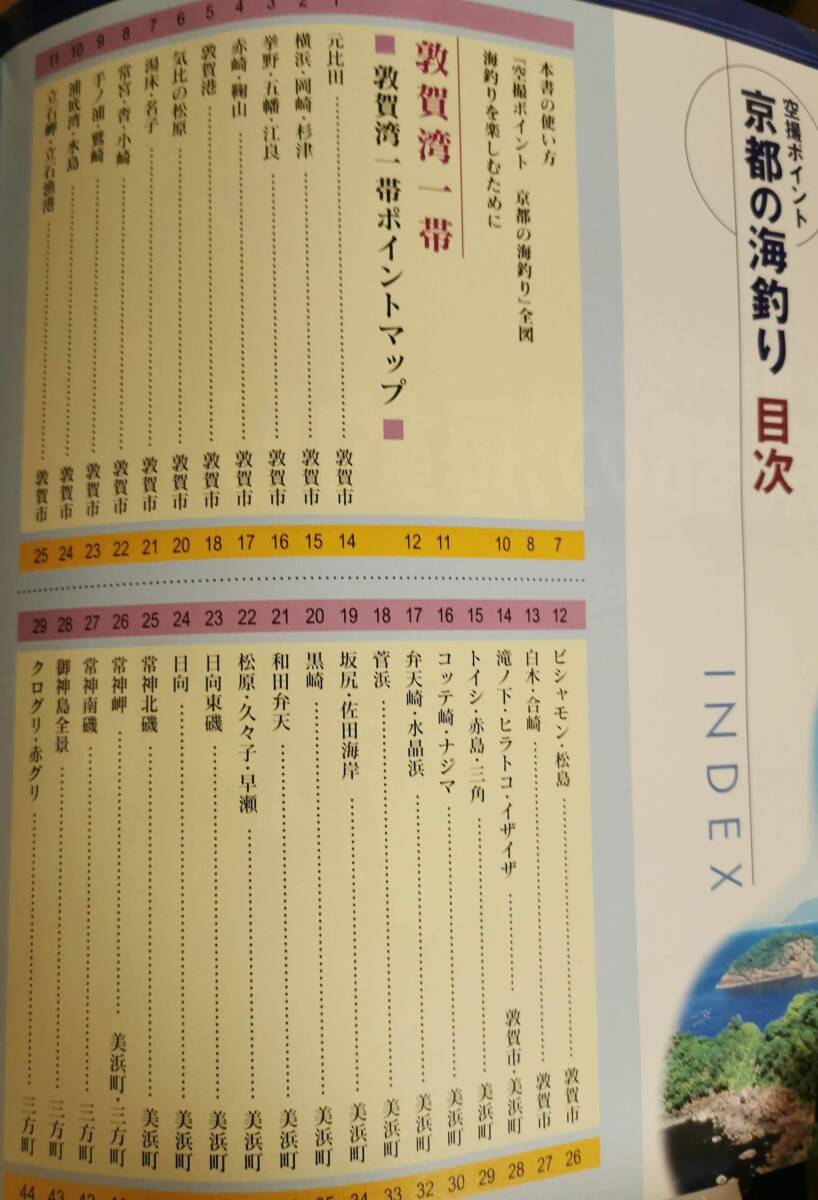 空撮ポイント
京都の海釣り 目次
INDEX
本書の使い方 7
『空撮ポイント 京都の海釣り』全図 8
海釣りを楽しむために 10
敦賀湾一帯 11
■敦賀湾一帯ポイントマップ■ 12
1 元比田 敦賀市 14
2 横浜・岡崎・杉津 敦賀市 15
3 挙野・五幡・江良 敦賀市 16
4 赤崎・鞠山 敦賀市 17
5 敦賀港 敦賀市 18
6 気比の松原 敦賀市 20
7 湯床・名子 敦賀市 21
8 常宮・沓・小崎 敦賀市 22
9 手ノ浦・鷲崎 敦賀市 23
10 浦底湾・水島 敦賀市 24
11 立石岬・立石漁港 敦賀市 25
12 ビシャモン・松島 敦賀市 26
13 白木・合崎 敦賀市 27
14 滝ノ下・ヒラトコ・イザイザ 敦賀市・美浜町 28
15 トイシ・赤島・三角 美浜町 29
16 コッテ崎・ナジマ 美浜町 30
17 弁天崎・水晶浜 美浜町 32
18 菅浜 美浜町 33
19 坂尻・佐田海岸 美浜町 34
20 黒崎 美浜町
21 和田弁天 美浜町
22 松原・久々子・早瀬 美浜町
23 日向東磯 美浜町
24 日向 美浜町
25 常神北磯 美浜町
26 常神岬 美浜町・三方町
27 常神南磯 三方町
28 御神島全景 三方町 43
29 クログリ・赤グリ 三方町 44